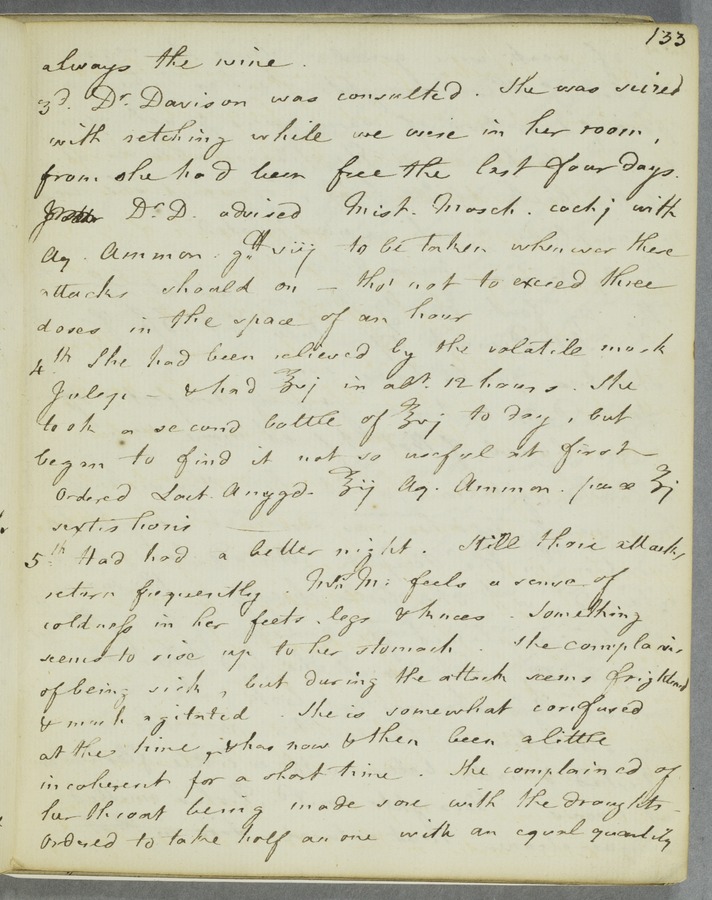 133
always the wine.
3d. Dr. Davison was consulted. She was seized
with retching while we were in her room,
from she had been free the last four days.
Dr D. advised Mist. Mosch. cochj with
Aq. Ammon. gtt viij to be taken whenever these
attacks should on – tho' not to exceed three
doses in the space of an hour
4th She had been relieved by the volatile musk
Julep – & had ʒvj in abt. 12 hours. She
took a second bottle of ʒvj to day, but
began to find it not so useful at first
Ordered Lact. Amygd. ʒij Aq. Ammon. purae ʒj
sextis horis
5th Had had a better night. Still those attacks
return frequently. Mrs M: feels a sense of
coldness in her feets legs & knees. Something
seems to rise up to her stomach. She complains
of being sick, but during the attack seems frightened
& much agitated. She is somewhat confused
at the time, & has now & then been a little
incoherent for a short time. She complained of
her throat being made sore with the draughts –
Ordered to take half an one with an equal quantity